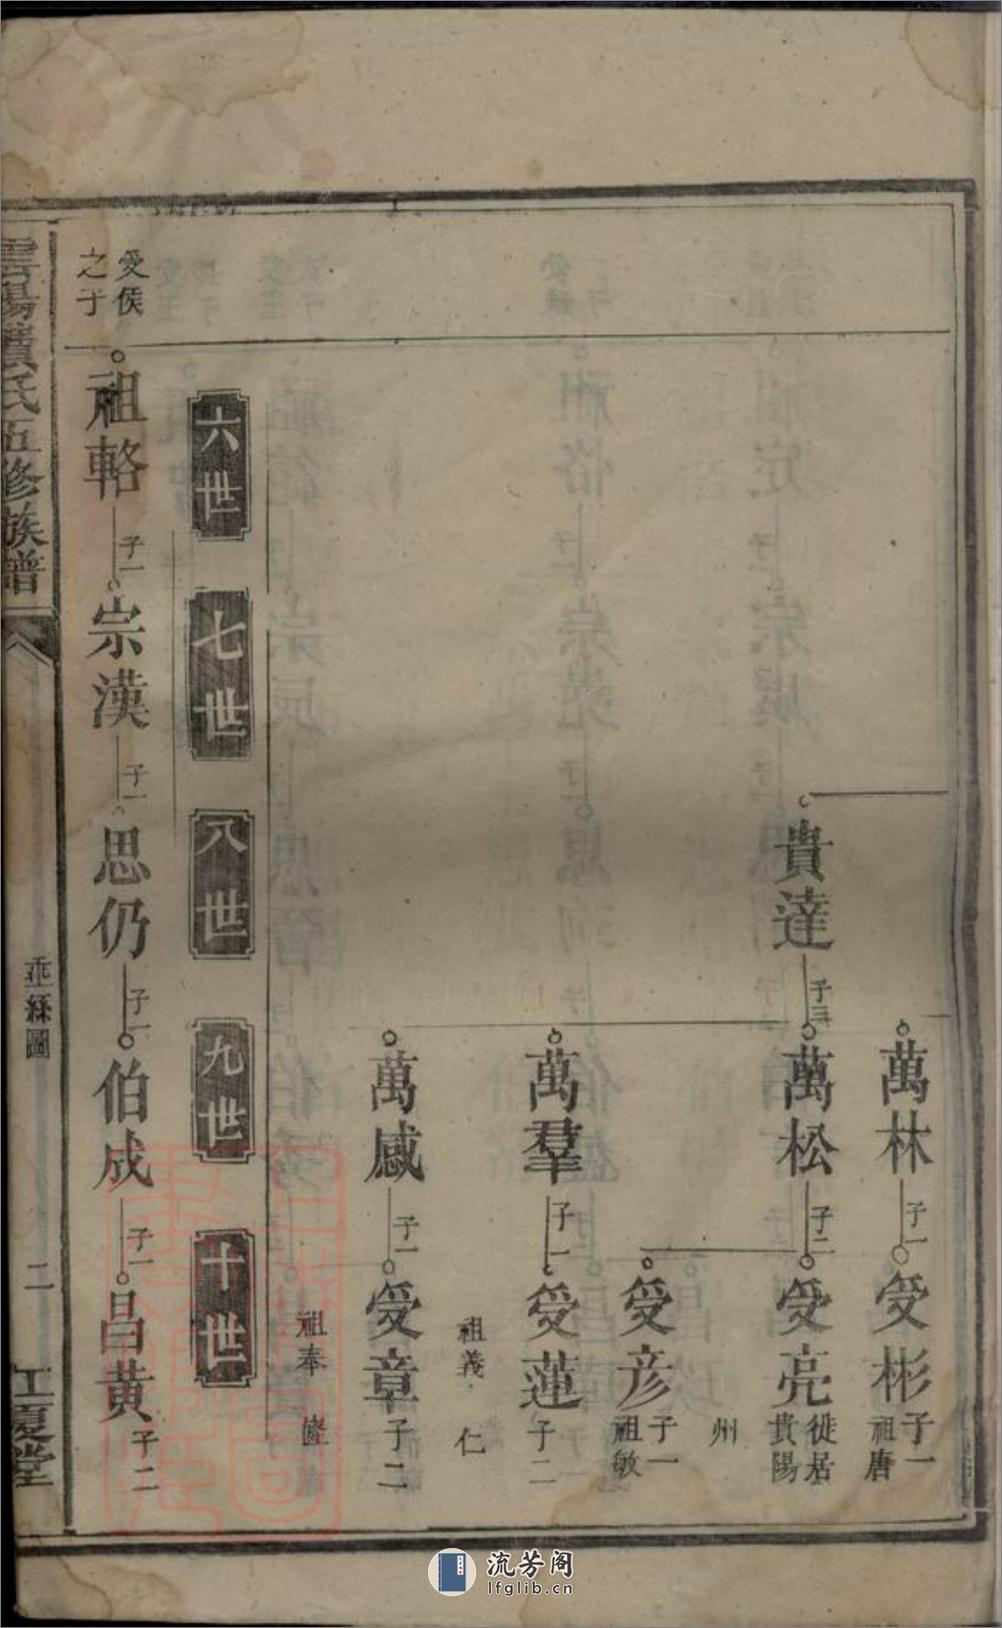 貴達
子三
萬林
子一
受彬
子一
祖唐
萬松
子二
受亮
徙居
貴陽
州
受彦
子一
祖敏
萬羣
子一
受蓮
子二
祖義
仁
萬感
子一
受章
子二
祖奉
六世
七世
八世
九世
十世
受侯
之子
祖輅
子一
宗漢
子一
思仍
子一
伯成
子一
昌黄
子二
雲陽黄氏五修族譜
垂絲圖
二
江夏堂
流芳阁
lfglib.cn